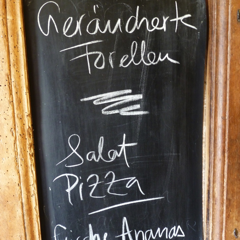 Geräucherte
Forellen
Salat
Pizza
Frische Ananas